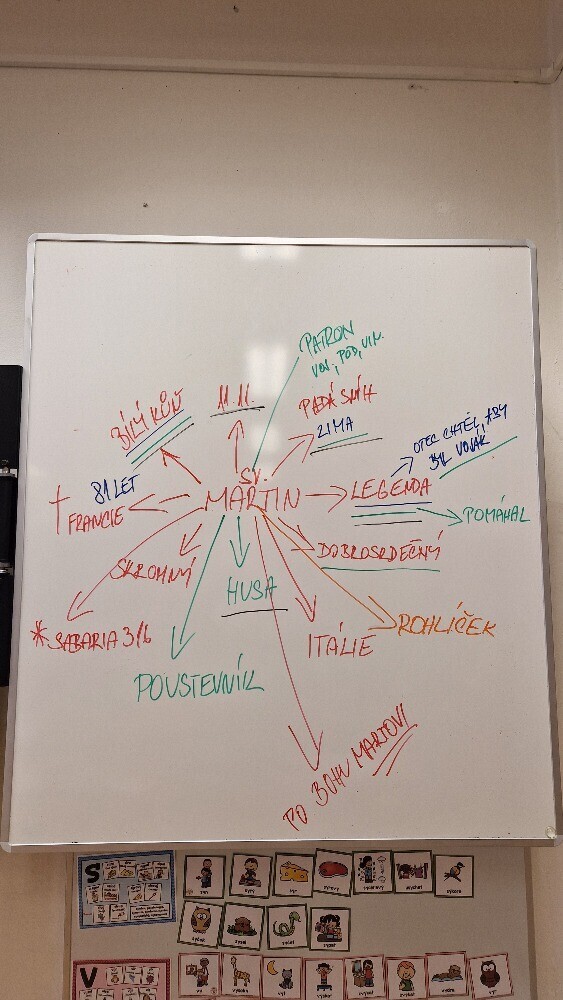 PATRON
VOJ., POD., VIN.
BÍLÝ KŮŇ
11.11.
PADÁ SNÍH
ZIMA
OTEC CHTĚL, ABY
BYL VOJÁK
SV.
MARTIN
LEGENDA
81 LET
† FRANCIE
POMÁHAL
SKROMNÝ
DOBROSRDEČNÝ
HUSA
* SABARIA 316
ITÁLIE
ROHLÍČEK
POUSTEVNÍK
PO BOHU MARTOVI
S
sýr
syrový
sýček
sysel
syčet
V
výr